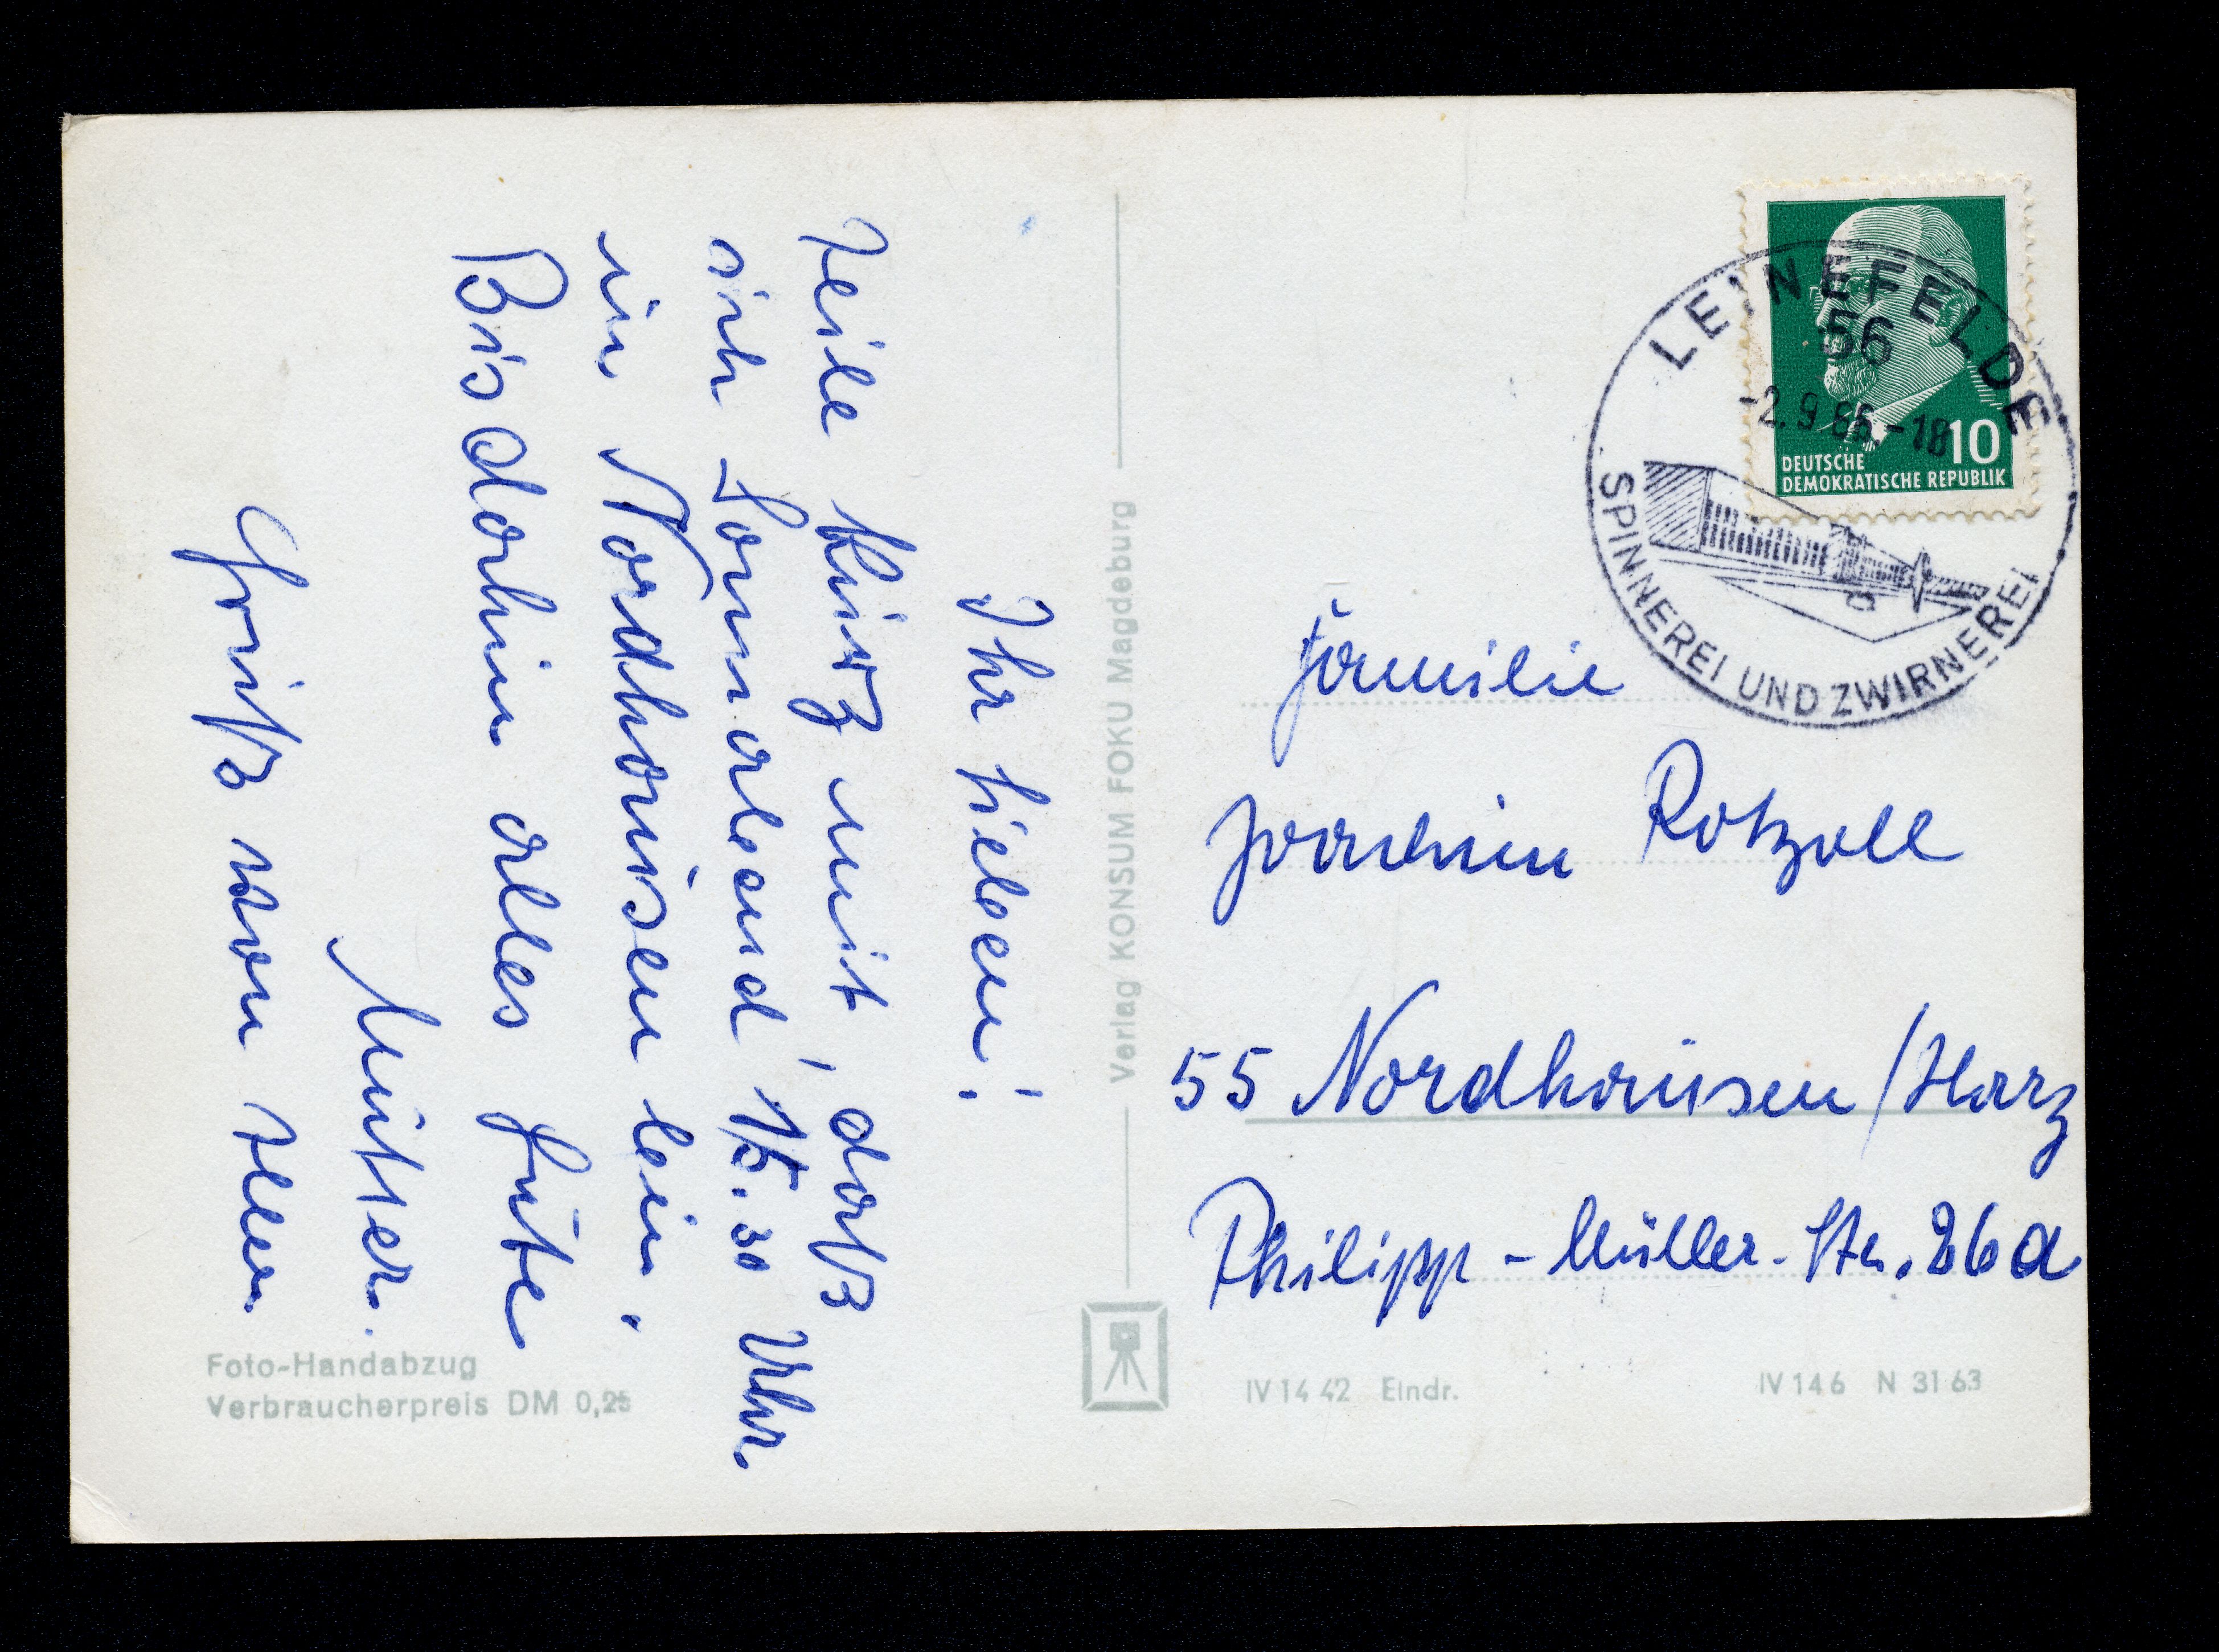 Ihr Lieben!
Teile kurz mit, daß
ich Sonnabend 15.30 Uhr
in Nordhausen bin.
Bis dahin alles Gute
Mutter.
Gruß von
Foto-Handabzug
Verbraucherpreis DM 0,25
Verlag KONSUM FOKU Magdeburg
LEINEFELDE
56
-2.9.65.-18
SPINNEREI UND ZWIRNEREI
10
DEUTSCHE
DEMOKRATISCHE REPUBLIK
Familie
Joachim Rotzoll
55 Nordhausen/Harz
Philipp-Müller-Str. 26a
IV 14 42 Eindr.
IV 146 N 31 63